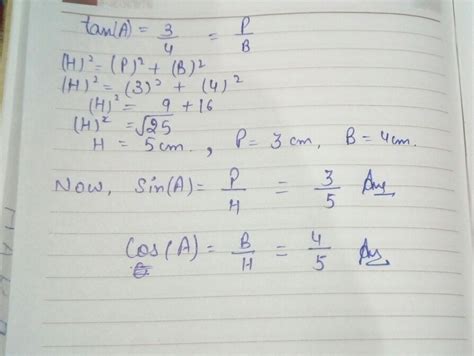 tan(A) = 3/4 = P/B
(H)² = (P)² + (B)²
(H)² = (3)² + (4)²
(H)² = 9 + 16
(H)² = √25
H = 5 cm, P = 3 cm, B = 4 cm.
Now, Sin(A) = P/H = 3/5 Ans
Cos(A) = B/H = 4/5 Ans